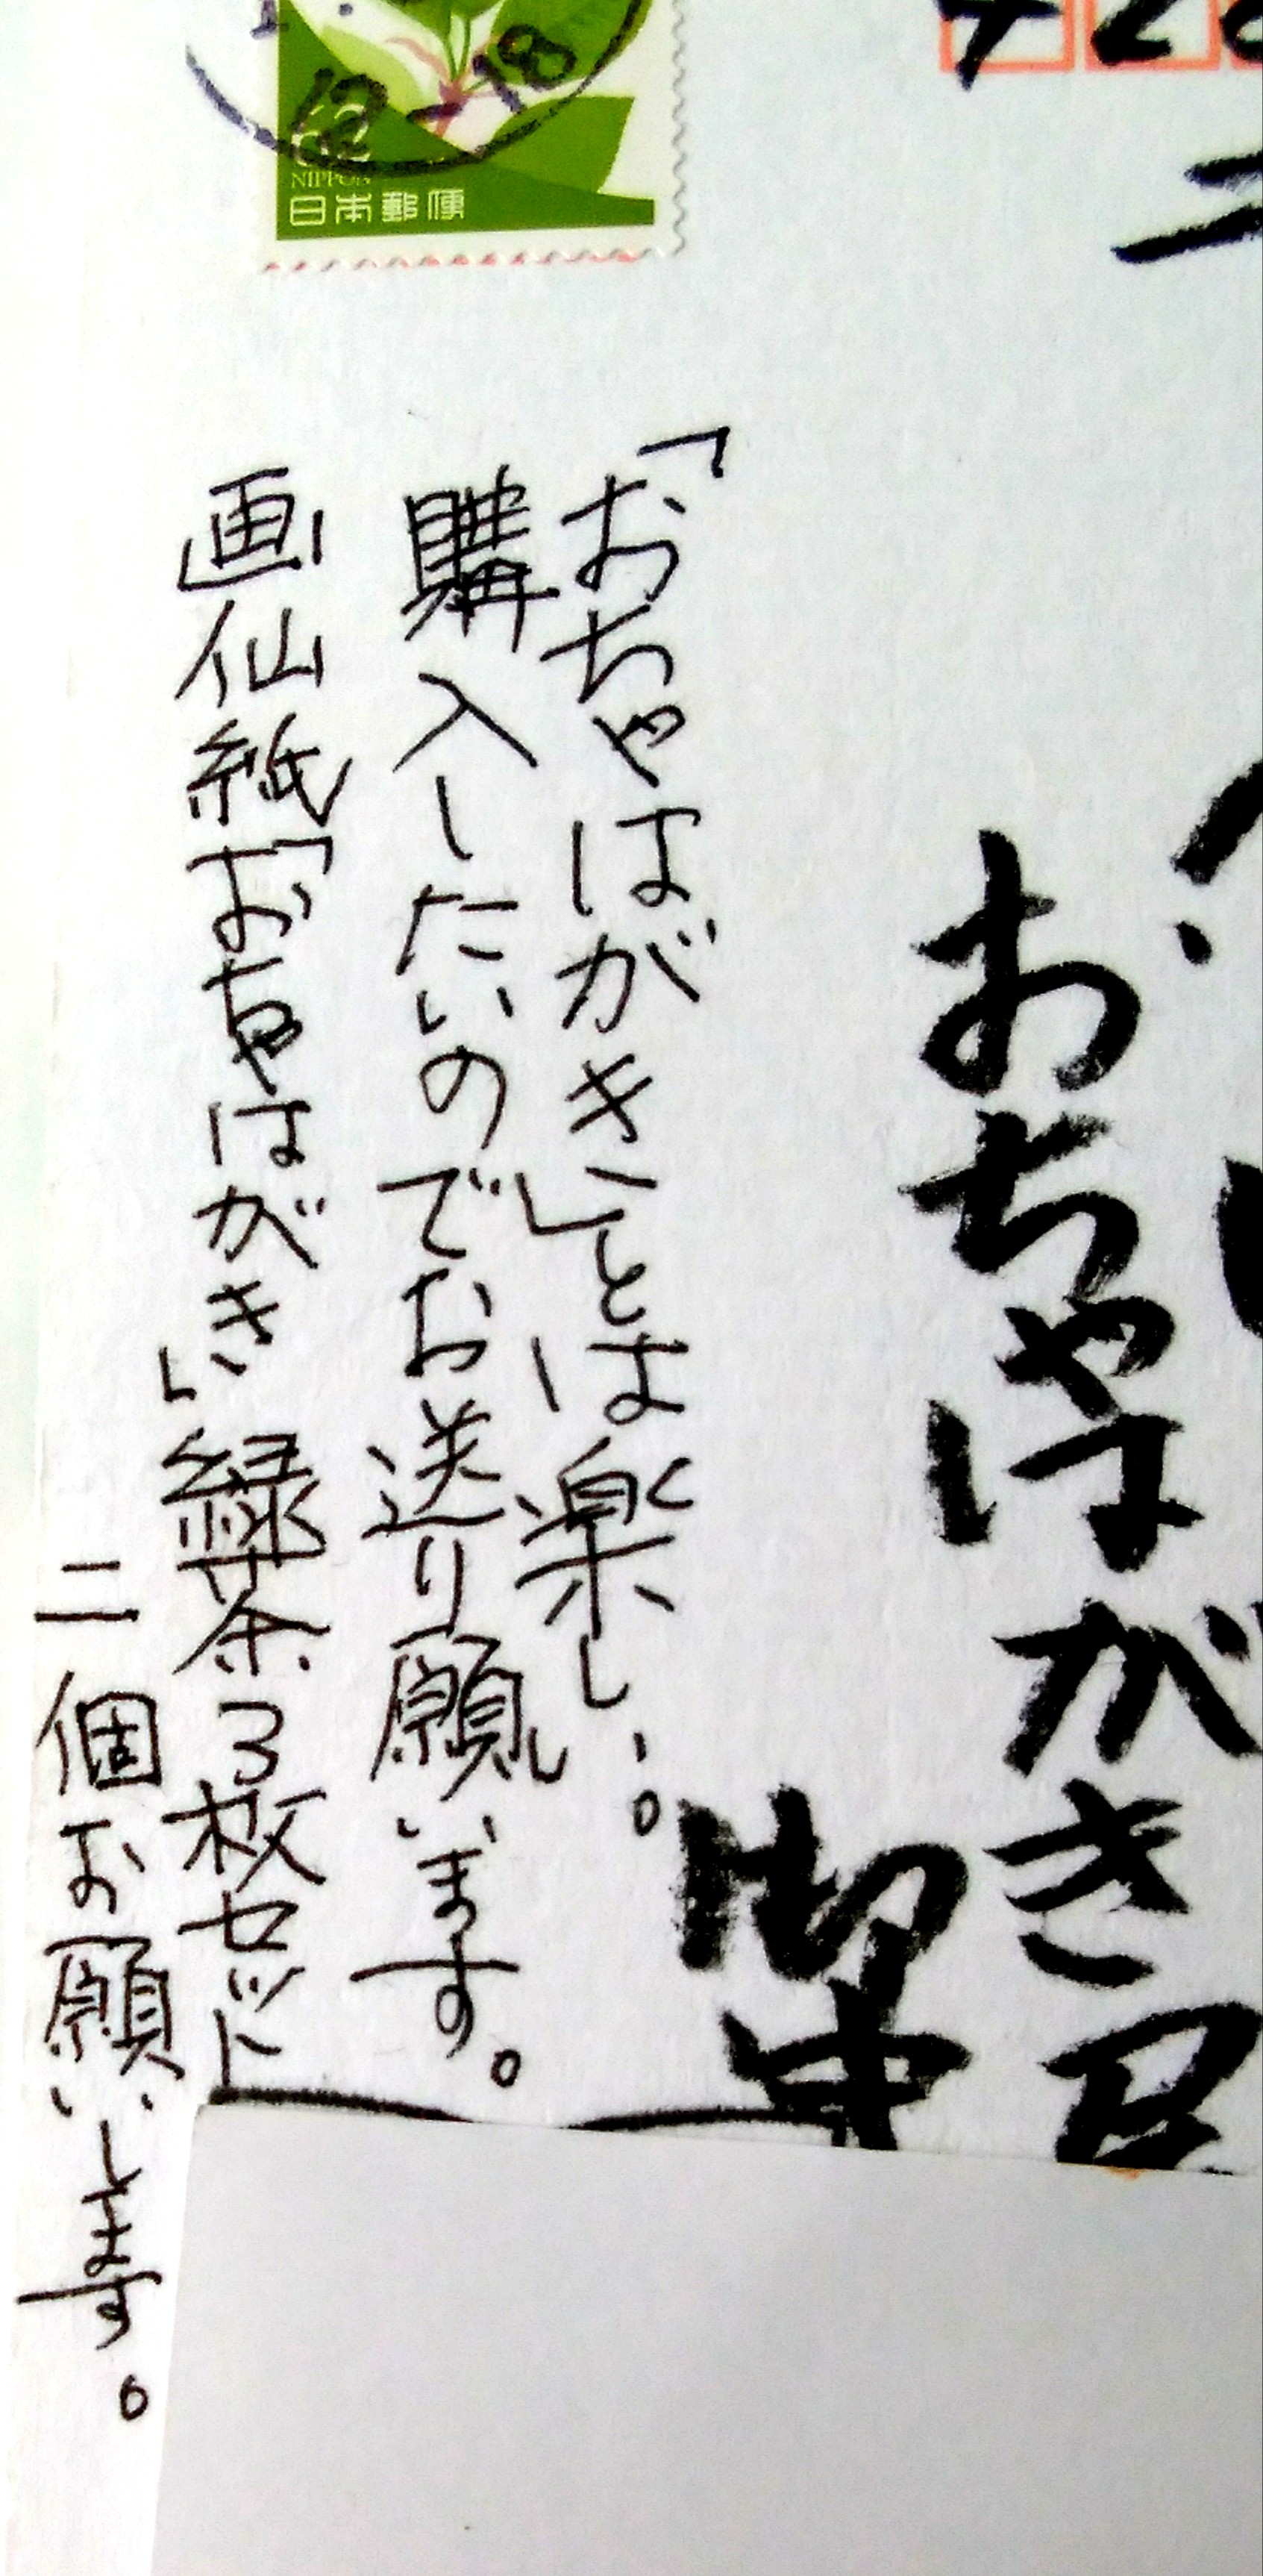 12-18
62
NIPPON
日本郵便
おちゃはがき
御中
「おちゃはがき」とは楽しい。
購入したいのでお送り願います。
画仙紙「おちゃはがき」緑茶3枚セット
二個お願いします。